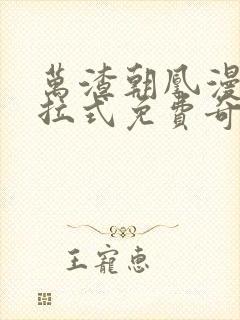 萬渣朝凰漫
拉式免費奇
王寵惠